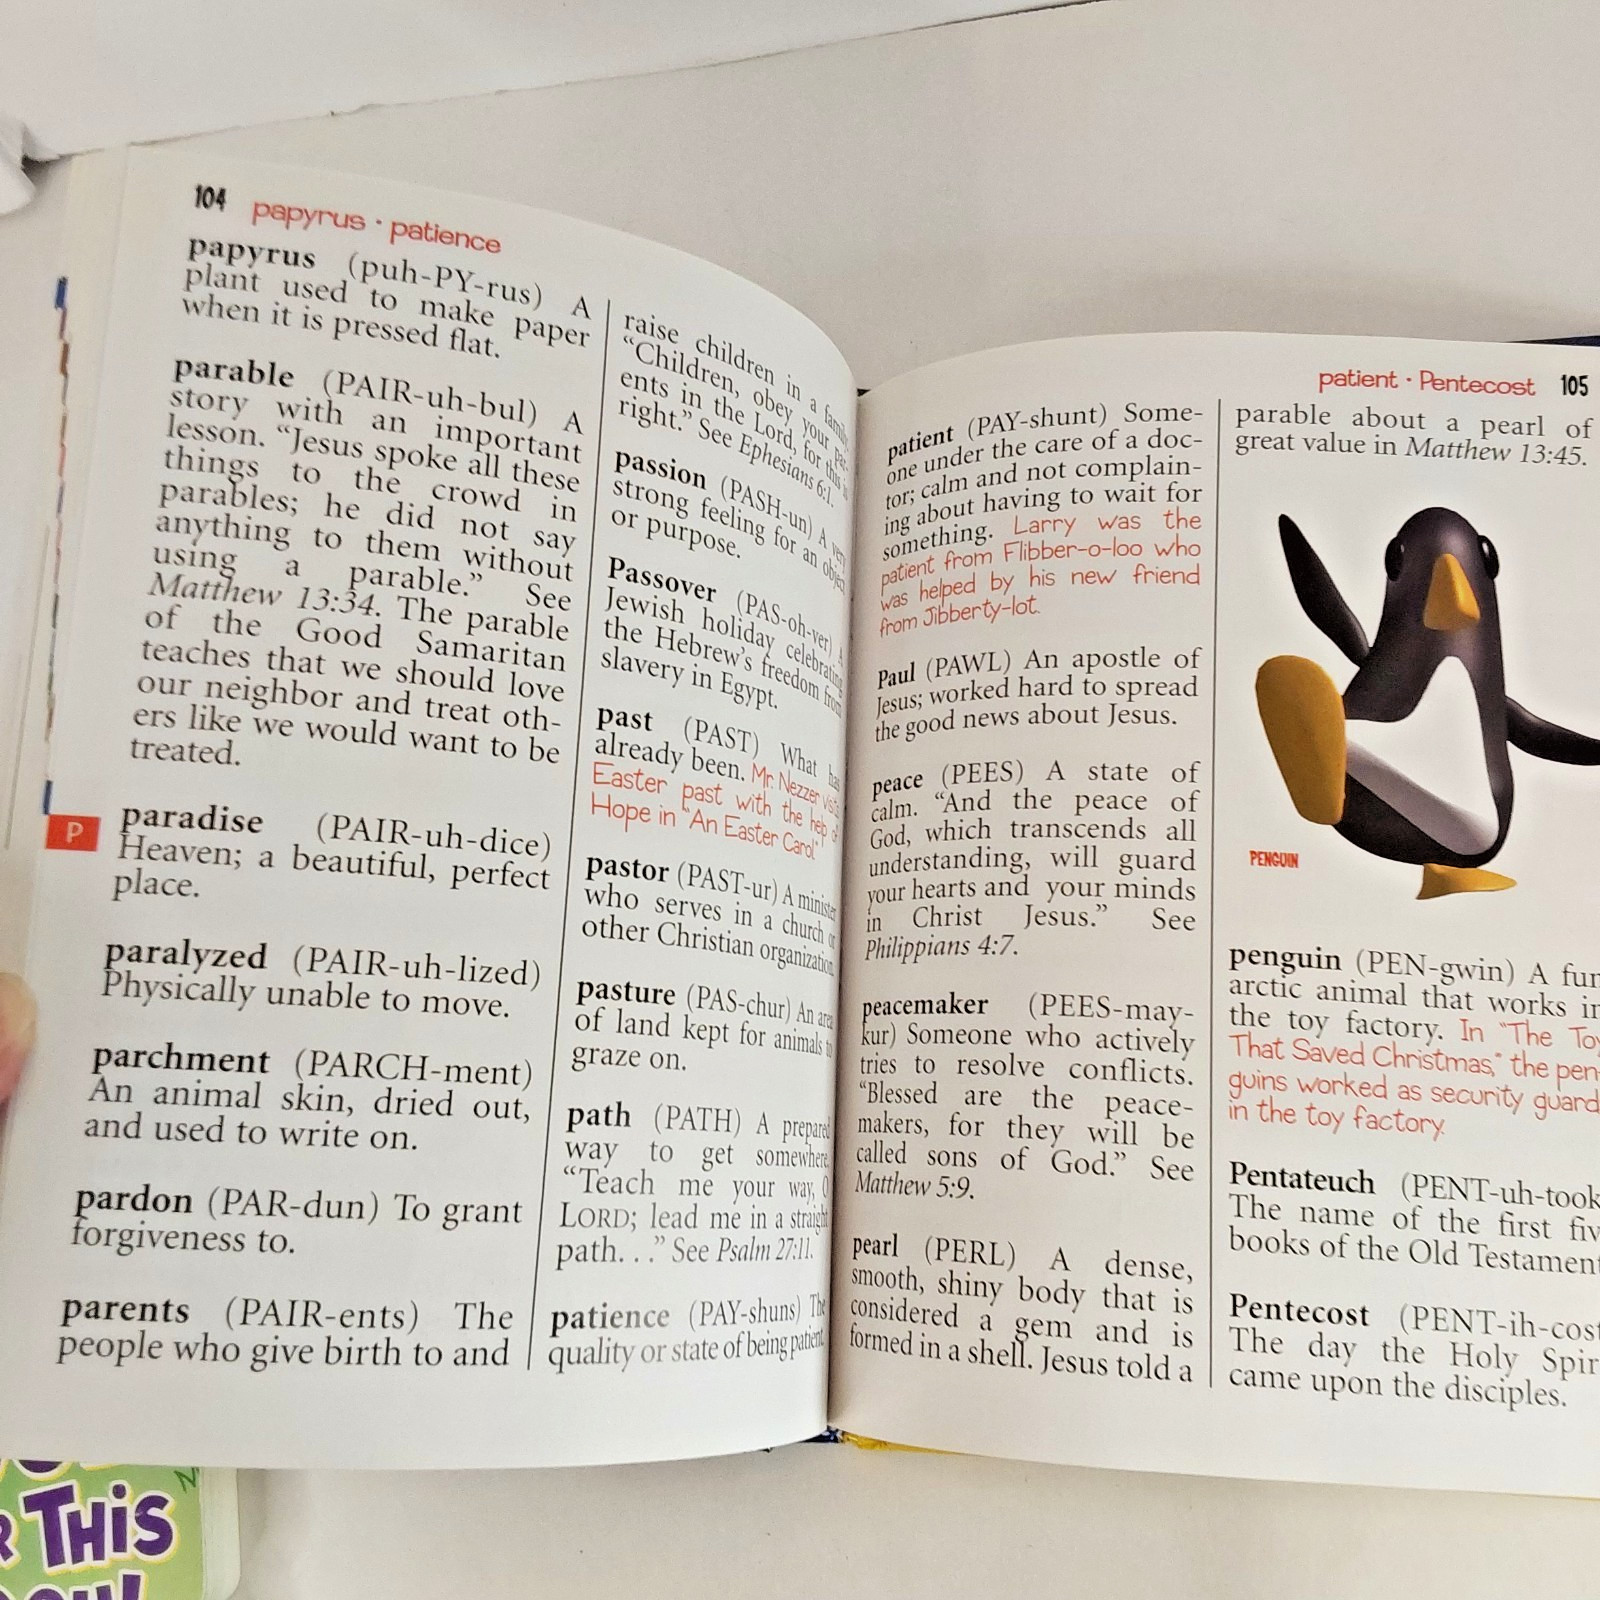 104 papyrus · patience
papyrus (puh-PY-rus) A
plant used to make paper
when it is pressed flat.
parable (PAIR-uh-bul) A
story with an important
lesson. “Jesus spoke all these
things to the crowd in
parables; he did not say
anything to them without
using a parable.” See
Matthew 13:34. The parable
of the Good Samaritan
teaches that we should love
our neighbor and treat oth-
ers like we would want to be
treated.
P
paradise (PAIR-uh-dice)
Heaven; a beautiful, perfect
place.
paralyzed (PAIR-uh-lized)
Physically unable to move.
parchment (PARCH-ment)
An animal skin, dried out,
and used to write on.
pardon (PAR-dun) To grant
forgiveness to.
parents (PAIR-ents) The
people who give birth to and
raise children in a family
“Children, obey your par-
ents in the Lord, for this is
right.” See Ephesians 6:1.
passion (PASH-un) A very
strong feeling for an object
or purpose.
Passover (PAS-oh-ver) A
Jewish holiday celebrating
the Hebrew’s freedom from
slavery in Egypt.
past (PAST) What has
already been. Mr. Nezzer visits
Easter past with the help of
Hope in “An Easter Carol”
pastor (PAST-ur) A minister
who serves in a church or
other Christian organization
pasture (PAS-chur) An area
of land kept for animals to
graze on.
path (PATH) A prepared
way to get somewhere.
“Teach me your way, O
LORD; lead me in a straight
path. . .” See Psalm 27:11.
patience (PAY-shuns) The
quality or state of being patient.
patient · Pentecost 105
patient (PAY-shunt) Some-
one under the care of a doc-
tor; calm and not complain-
ing about having to wait for
something. Larry was the
patient from Flibber-o-loo who
was helped by his new friend
from Jibberty-lot.
Paul (PAWL) An apostle of
Jesus; worked hard to spread
the good news about Jesus.
peace (PEES) A state of
calm. “And the peace of
God, which transcends all
understanding, will guard
your hearts and your minds
in Christ Jesus.” See
Philippians 4:7.
peacemaker (PEES-may-
kur) Someone who actively
tries to resolve conflicts.
“Blessed are the peace-
makers, for they will be
called sons of God.” See
Matthew 5:9.
pearl (PERL) A dense,
smooth, shiny body that is
considered a gem and is
formed in a shell. Jesus told a
parable about a pearl of
great value in Matthew 13:45.
PENGUIN
penguin (PEN-gwin) A fun
arctic animal that works in
the toy factory. In “The Toy
That Saved Christmas,” the pen-
guins worked as security guard
in the toy factory.
Pentateuch (PENT-uh-took
The name of the first fiv
books of the Old Testament
Pentecost (PENT-ih-cost
The day the Holy Spir
came upon the disciples.
R THiS